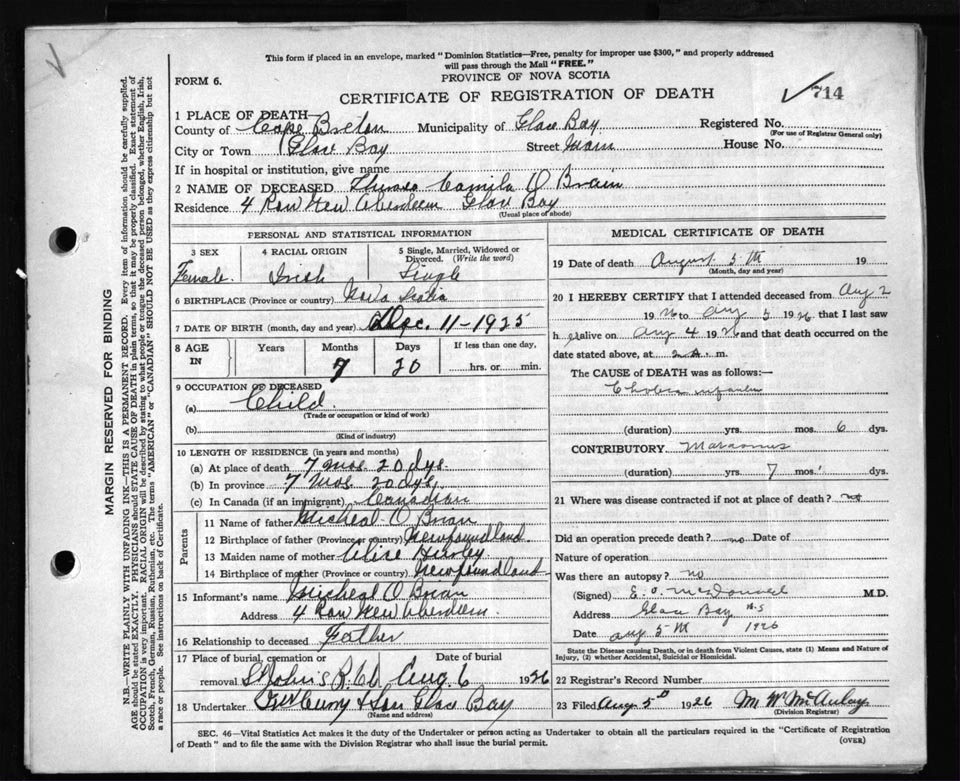 This form if placed in an envelope, marked "Dominion Statistics—Free, penalty for improper use $300," and properly addressed
will pass through the Mail "FREE."
FORM 6.
PROVINCE OF NOVA SCOTIA
CERTIFICATE OF REGISTRATION OF DEATH
714
1 PLACE OF DEATH—
County of Cape Breton Municipality of Glace Bay Registered No.
(For use of Registrar General only)
City or Town Glace Bay Street Main House No.
If in hospital or institution, give name
2 NAME OF DECEASED Theresa Camila O Brain
Residence 4 Row New Aberdeen Glace Bay
(Usual place of abode)
PERSONAL AND STATISTICAL INFORMATION
3 SEX
Female
4 RACIAL ORIGIN
Irish
5 Single, Married, Widowed or
Divorced. (Write the word)
Single
6 BIRTHPLACE (Province or country) Nova Scotia
7 DATE OF BIRTH (month, day and year) Dec. 11-1925
8 AGE
IN
Years
Months
7
Days
20
If less than one day,
hrs. or min.
9 OCCUPATION OF DECEASED
(a) Child
(Trade or occupation or kind of work)
(b)
(Kind of industry)
10 LENGTH OF RESIDENCE (in years and months)
(a) At place of death 7 mos. 20 dys.
(b) In province 7 mos. 20 dys.
(c) In Canada (if an immigrant) Canadian
Parents
11 Name of father Micheal O Brian
12 Birthplace of father (Province or country) Newfoundland
13 Maiden name of mother Alice
14 Birthplace of mother (Province or country) Newfoundland
15 Informant's name Micheal O Brian
Address 4 Row New Aberdeen
16 Relationship to deceased Father
17 Place of burial, cremation or
removal St John's R.C.
Date of burial
Aug. 6 1926
18 Undertaker & Son Glace Bay
(Name and address)
MEDICAL CERTIFICATE OF DEATH
19 Date of death August 5th 19
(Month, day and year)
20 I HEREBY CERTIFY that I attended deceased from Aug 2
1926 to Aug 5 1926. that I last saw
her alive on Aug 4 1926 and that death occurred on the
date stated above, at m.
The CAUSE of DEATH was as follows:—
Cholera infantum
(duration) yrs. mos. 6 dys.
CONTRIBUTORY Marasmus
(duration) yrs. 7 mos. dys.
21 Where was disease contracted if not at place of death? no
Did an operation precede death? no Date of
Nature of operation
Was there an autopsy? no
(Signed) McDonald M.D.
Address Glace Bay N.S
Date Aug 5th 1926
State the Disease causing Death, or in death from Violent Causes, state (1) Means and Nature of
Injury, (2) whether Accidental, Suicidal or Homicidal.
22 Registrar's Record Number
23 Filed Aug 5th 1926 M W McAulay
(Division Registrar)
SEC. 46—Vital Statistics Act makes it the duty of the Undertaker or person acting as Undertaker to obtain all the particulars required in the "Certificate of Registration
of Death" and to file the same with the Division Registrar who shall issue the burial permit.
(OVER)
MARGIN RESERVED FOR BINDING
N.B.—WRITE PLAINLY WITH UNFADING INK—THIS IS A PERMANENT RECORD. Every item of information should be carefully supplied.
AGE should be stated EXACTLY. PHYSICIANS should STATE CAUSE OF DEATH in plain terms, so that it may be properly classified. Exact statement of
OCCUPATION is very important. RACIAL ORIGIN will be described by stating to what people or tongue the deceased person belonged, whether English, Irish,
Scotch, French, German, Russian, Ruthenian, etc. The terms "AMERICAN" or "CANADIAN" SHOULD NOT BE USED as they express citizenship but not
a race or people. See instructions on back of Certificate.